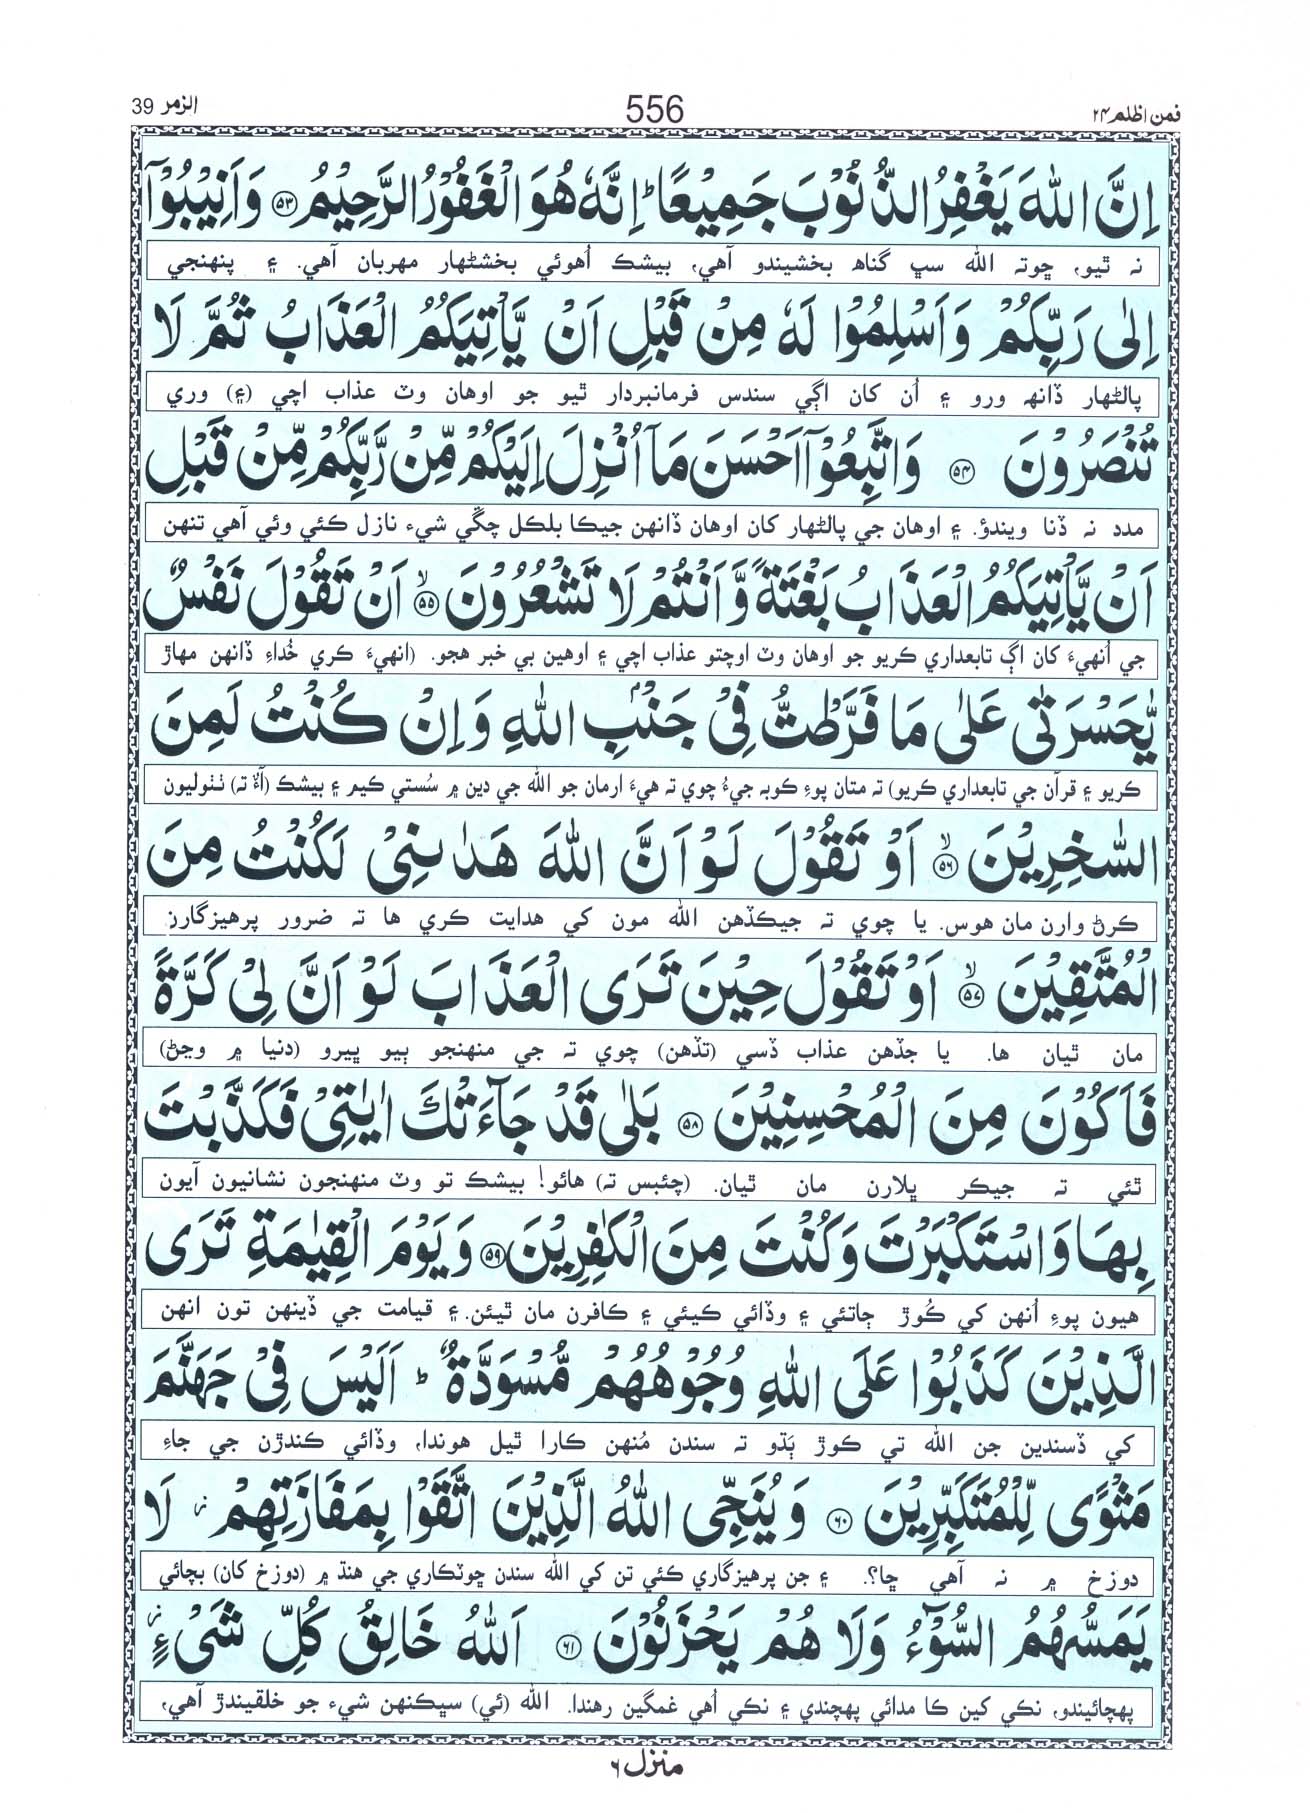 فمن اظلم ۲۴ 556 الزمر 39
اِنَّ اللّٰهَ يَغْفِرُ الذُّنُوْبَ جَمِيْعًا ؕ اِنَّهٗ هُوَ الْغَفُوْرُ الرَّحِيْمُ ۵۳ وَ اَنِيْبُوْٓا
نہ ٿيو، ڇوتہ اللہ سڀ گناھ بخشيندو آھي، بيشڪ اُھوئي بخشڻھار مھربان آھي. ۽ پنھنجي
اِلٰى رَبِّكُمْ وَ اَسْلِمُوْا لَهٗ مِنْ قَبْلِ اَنْ يَّاْتِيَكُمُ الْعَذَابُ ثُمَّ لَا
پالڻھار ڏانھ ورو ۽ اُن کان اڳي سندس فرمانبردار ٿيو جو اوھان وٽ عذاب اچي (۽) وري
تُنْصَرُوْنَ ۵۴ وَ اتَّبِعُوْٓا اَحْسَنَ مَآ اُنْزِلَ اِلَيْكُمْ مِّنْ رَّبِّكُمْ مِّنْ قَبْلِ
مدد نہ ڏنا ويندؤ. ۽ اوھان جي پالڻھار کان اوھان ڏانھن جيڪا بلڪل چڱي شيء نازل ڪئي وئي آھي تنھن
اَنْ يَّاْتِيَكُمُ الْعَذَابُ بَغْتَةً وَّ اَنْتُمْ لَا تَشْعُرُوْنَ ۙ ۵۵ اَنْ تَقُوْلَ نَفْسٌ
جي اُنھيءَ کان اڳ تابعداري ڪريو جو اوھان وٽ اوچتو عذاب اچي ۽ اوھين بي خبر ھجو. (انھيءَ ڪري خُداءِ ڏانھن مھاڙ
يّٰحَسْرَتٰى عَلٰى مَا فَرَّطْتُّ فِيْ جَنْۢبِ اللّٰهِ وَ اِنْ كُنْتُ لَمِنَ
ڪريو ۽ قرآن جي تابعداري ڪريو) تہ متان پوءِ ڪوبہ جيءُ چوي تہ ھيءَ ارمان جو اللہ جي دين ۾ سُستي ڪيم ۽ بيشڪ (آءٌ تہ) ٺٺوليون
السّٰخِرِيْنَ ۙ ۵۶ اَوْ تَقُوْلَ لَوْ اَنَّ اللّٰهَ هَدٰىنِيْ لَكُنْتُ مِنَ
ڪرڻ وارن مان ھوس. يا چوي تہ جيڪڏھن اللہ مون کي ھدايت ڪري ھا تہ ضرور پرھيزگارن
الْمُتَّقِيْنَ ۙ ۵۷ اَوْ تَقُوْلَ حِيْنَ تَرَى الْعَذَابَ لَوْ اَنَّ لِيْ كَرَّةً
مان ٿيان ھا. يا جڏھن عذاب ڏسي (تڏھن) چوي تہ جي منھنجو ٻيو ڀيرو (دنيا ۾ وڃڻ)
فَاَكُوْنَ مِنَ الْمُحْسِنِيْنَ ۵۸ بَلٰى قَدْ جَآءَتْكَ اٰيٰتِيْ فَكَذَّبْتَ
ٿئي تہ جيڪر ڀلارن مان ٿيان. (چئبس تہ) ھائو! بيشڪ تو وٽ منھنجون نشانيون آيون
بِهَا وَ اسْتَكْبَرْتَ وَ كُنْتَ مِنَ الْكٰفِرِيْنَ ۵۹ وَ يَوْمَ الْقِيٰمَةِ تَرَى
ھيون پوءِ اُنھن کي ڪُوڙ ڄاتئي ۽ وڏائي ڪيئي ۽ ڪافرن مان ٿيئن. ۽ قيامت جي ڏينھن تون انھن
الَّذِيْنَ كَذَبُوْا عَلَى اللّٰهِ وُجُوْهُهُمْ مُّسْوَدَّةٌ ؕ اَلَيْسَ فِيْ جَهَنَّمَ
کي ڏسندين جن اللہ تي ڪوڙ ٻَڌو تہ سندن مُنھن ڪارا ٿيل ھوندا، وڏائي ڪندڙن جي جاءِ
مَثْوًى لِّلْمُتَكَبِّرِيْنَ ۶۰ وَ يُنَجِّي اللّٰهُ الَّذِيْنَ اتَّقَوْا بِمَفَازَتِهِمْ ز لَا
دوزخ ۾ نہ آھي ڇا؟. ۽ جن پرھيزگاري ڪئي تن کي اللہ سندن ڇوٽڪاري جي ھنڌ ۾ (دوزخ کان) بچائي
يَمَسُّهُمُ السُّوْٓءُ وَ لَا هُمْ يَحْزَنُوْنَ ۶۱ اَللّٰهُ خَالِقُ كُلِّ شَيْءٍ ز
پھچائيندو، نڪي کين ڪا مدائي پھچندي ۽ نڪي اُھي غمگين رھندا. اللہ (ئي) سڀڪنھن شيء جو خلقيندڙ آھي،
منزل ۶